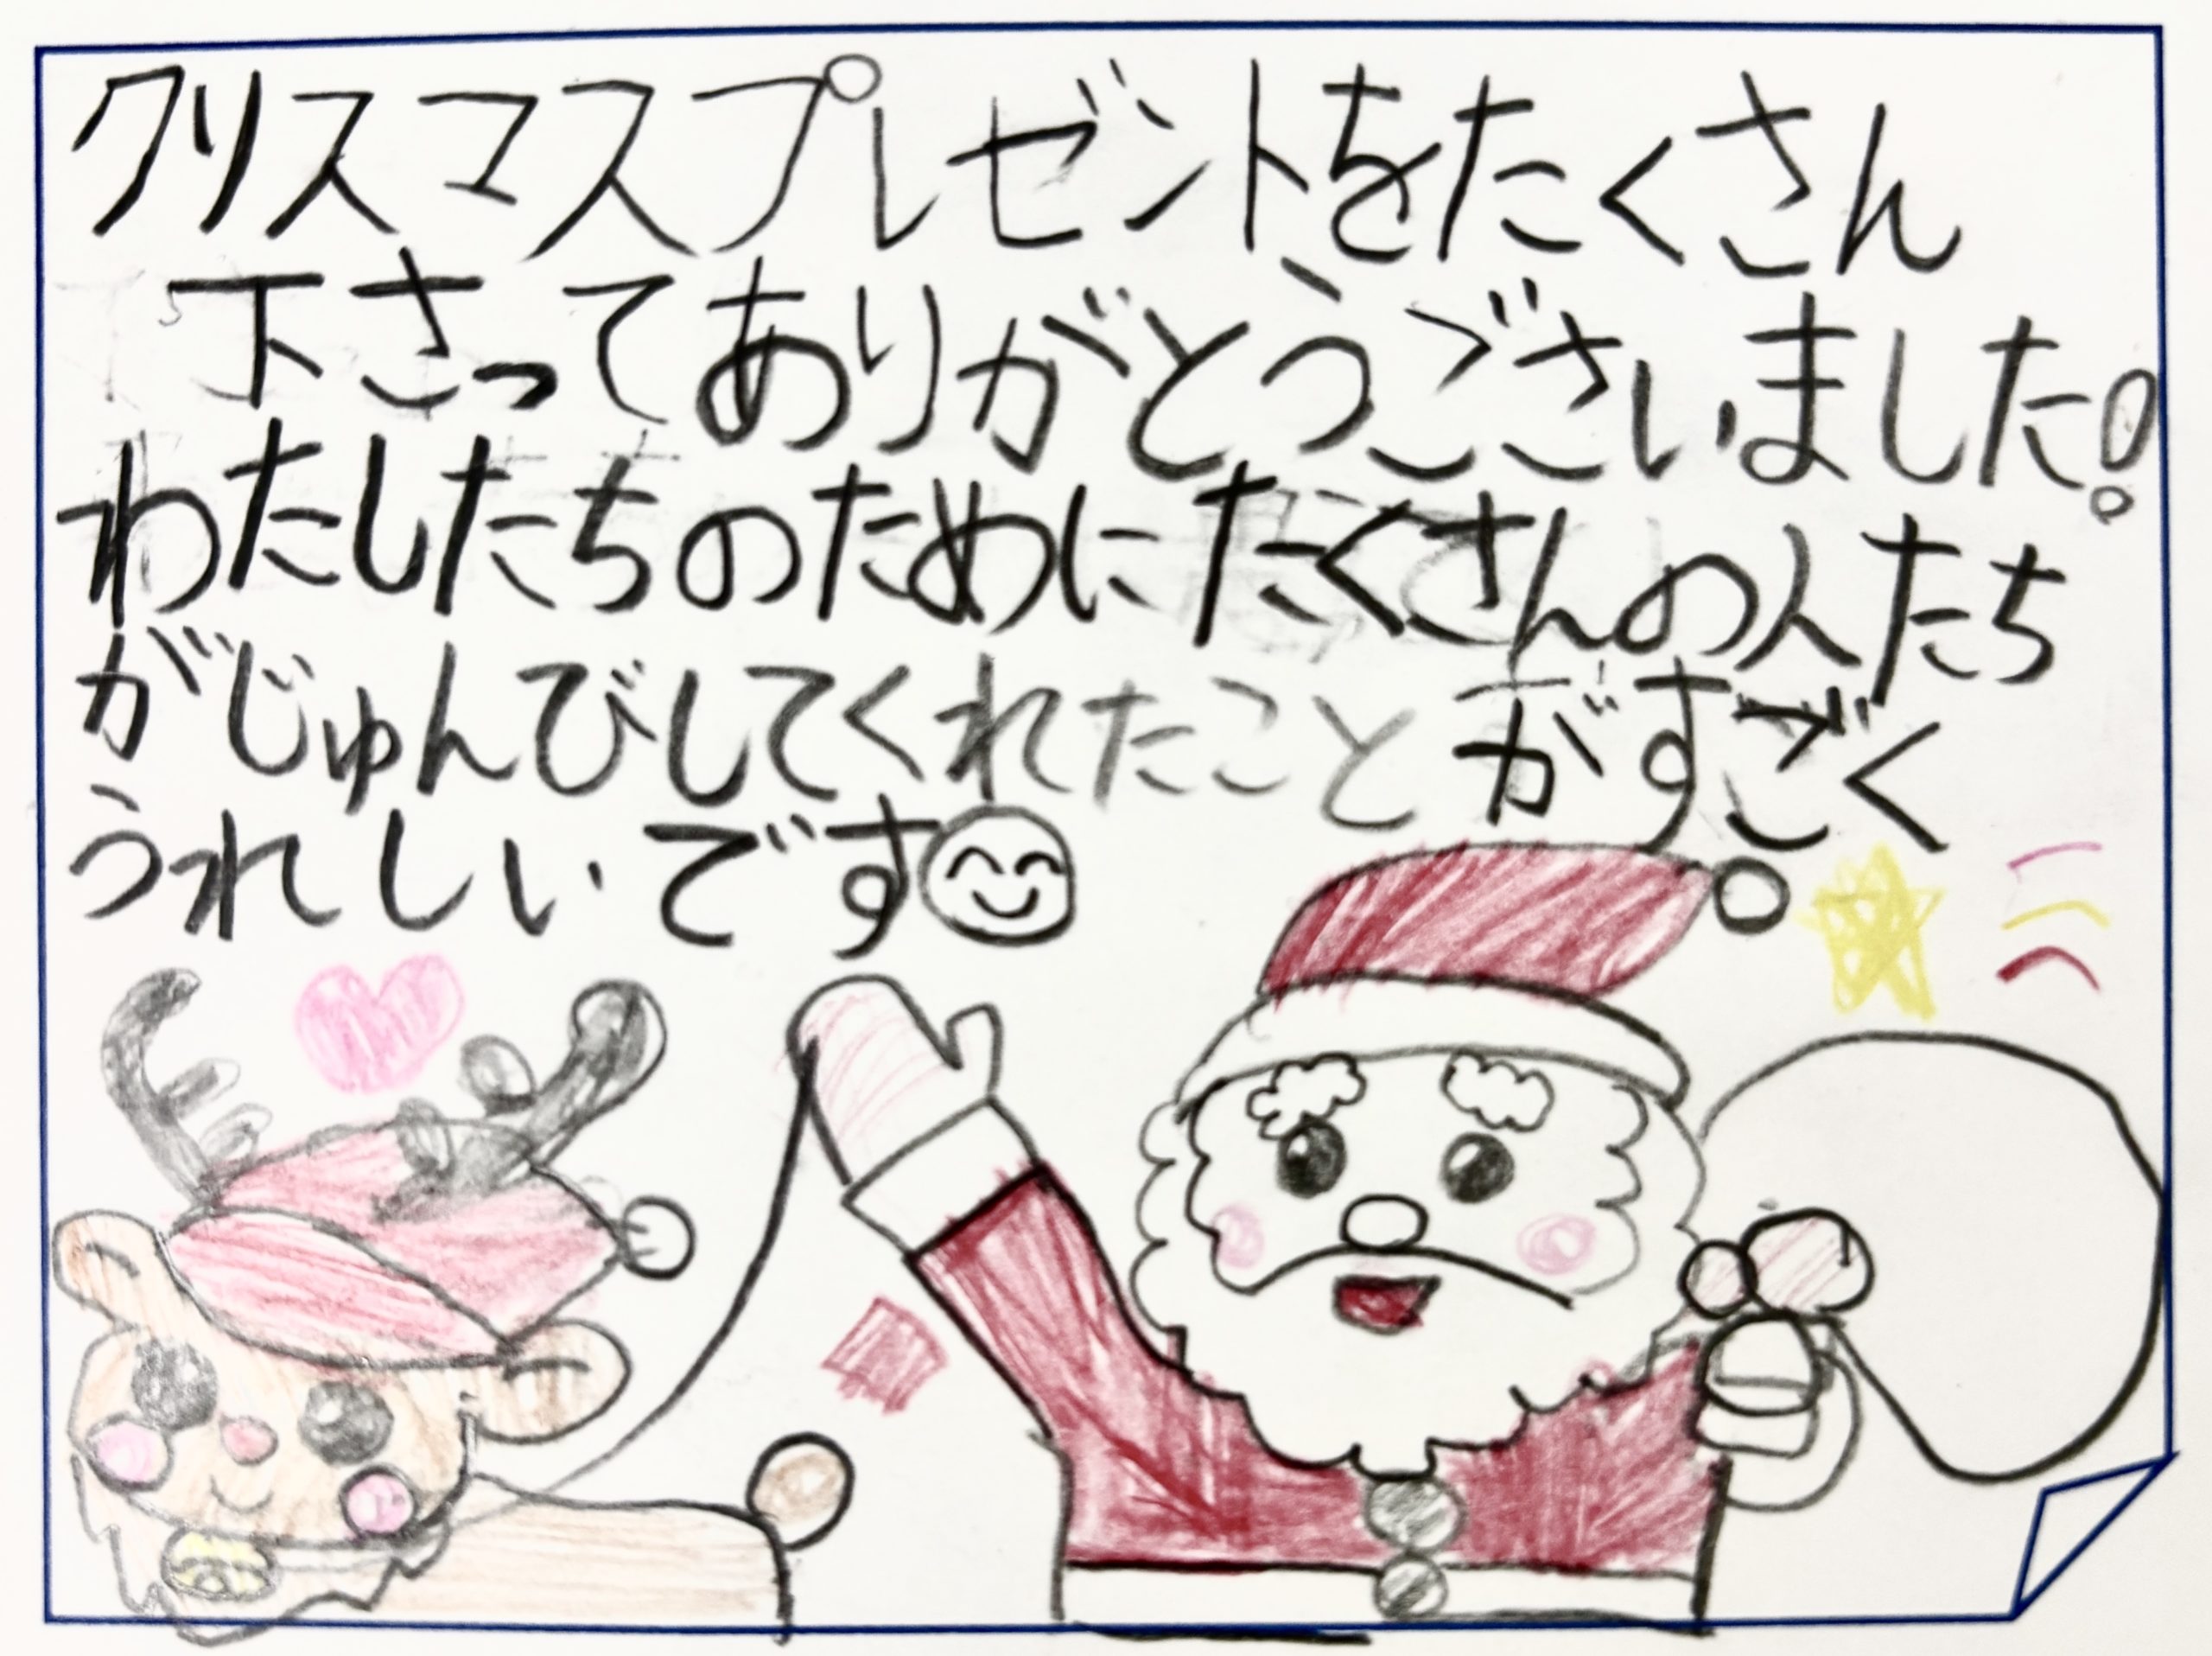 クリスマスプレゼントをたくさん
下さってありがとうございました!
わたしたちのためにたくさんの人たち
がじゅんびしてくれたことがすごく
うれしいです😊